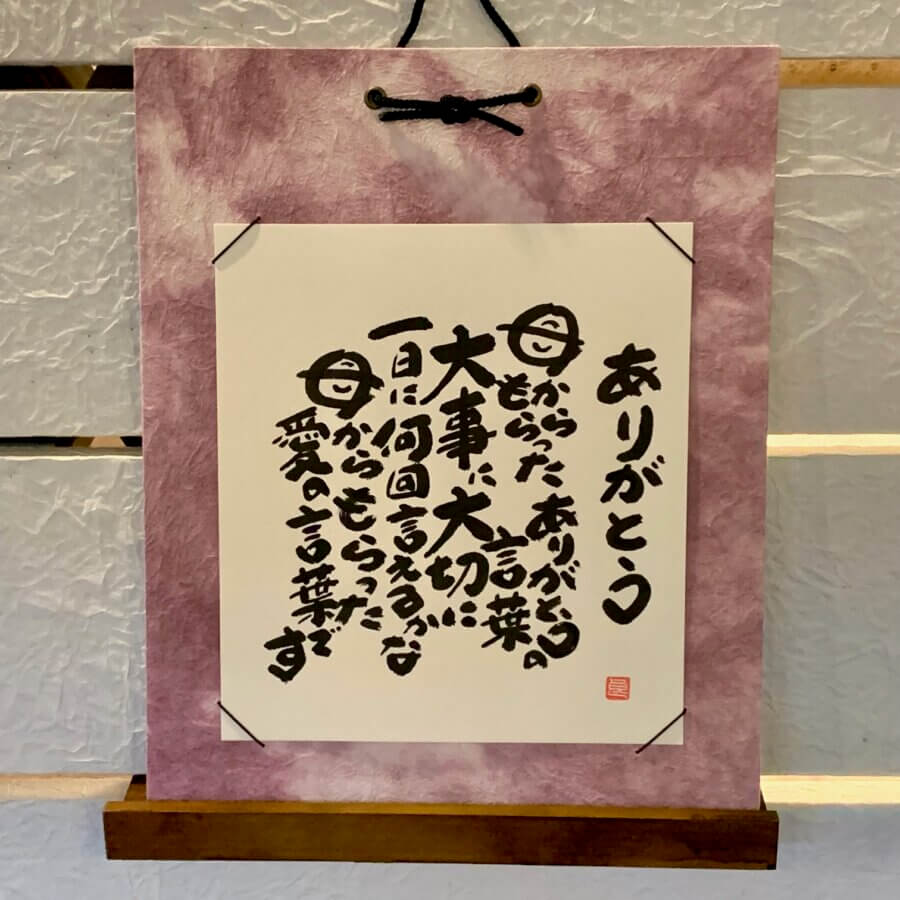 ありがとう
母からもらった ありがとうの言葉の
大事に大切に
一日に何回言えるかな
母からもらった
愛の言葉です